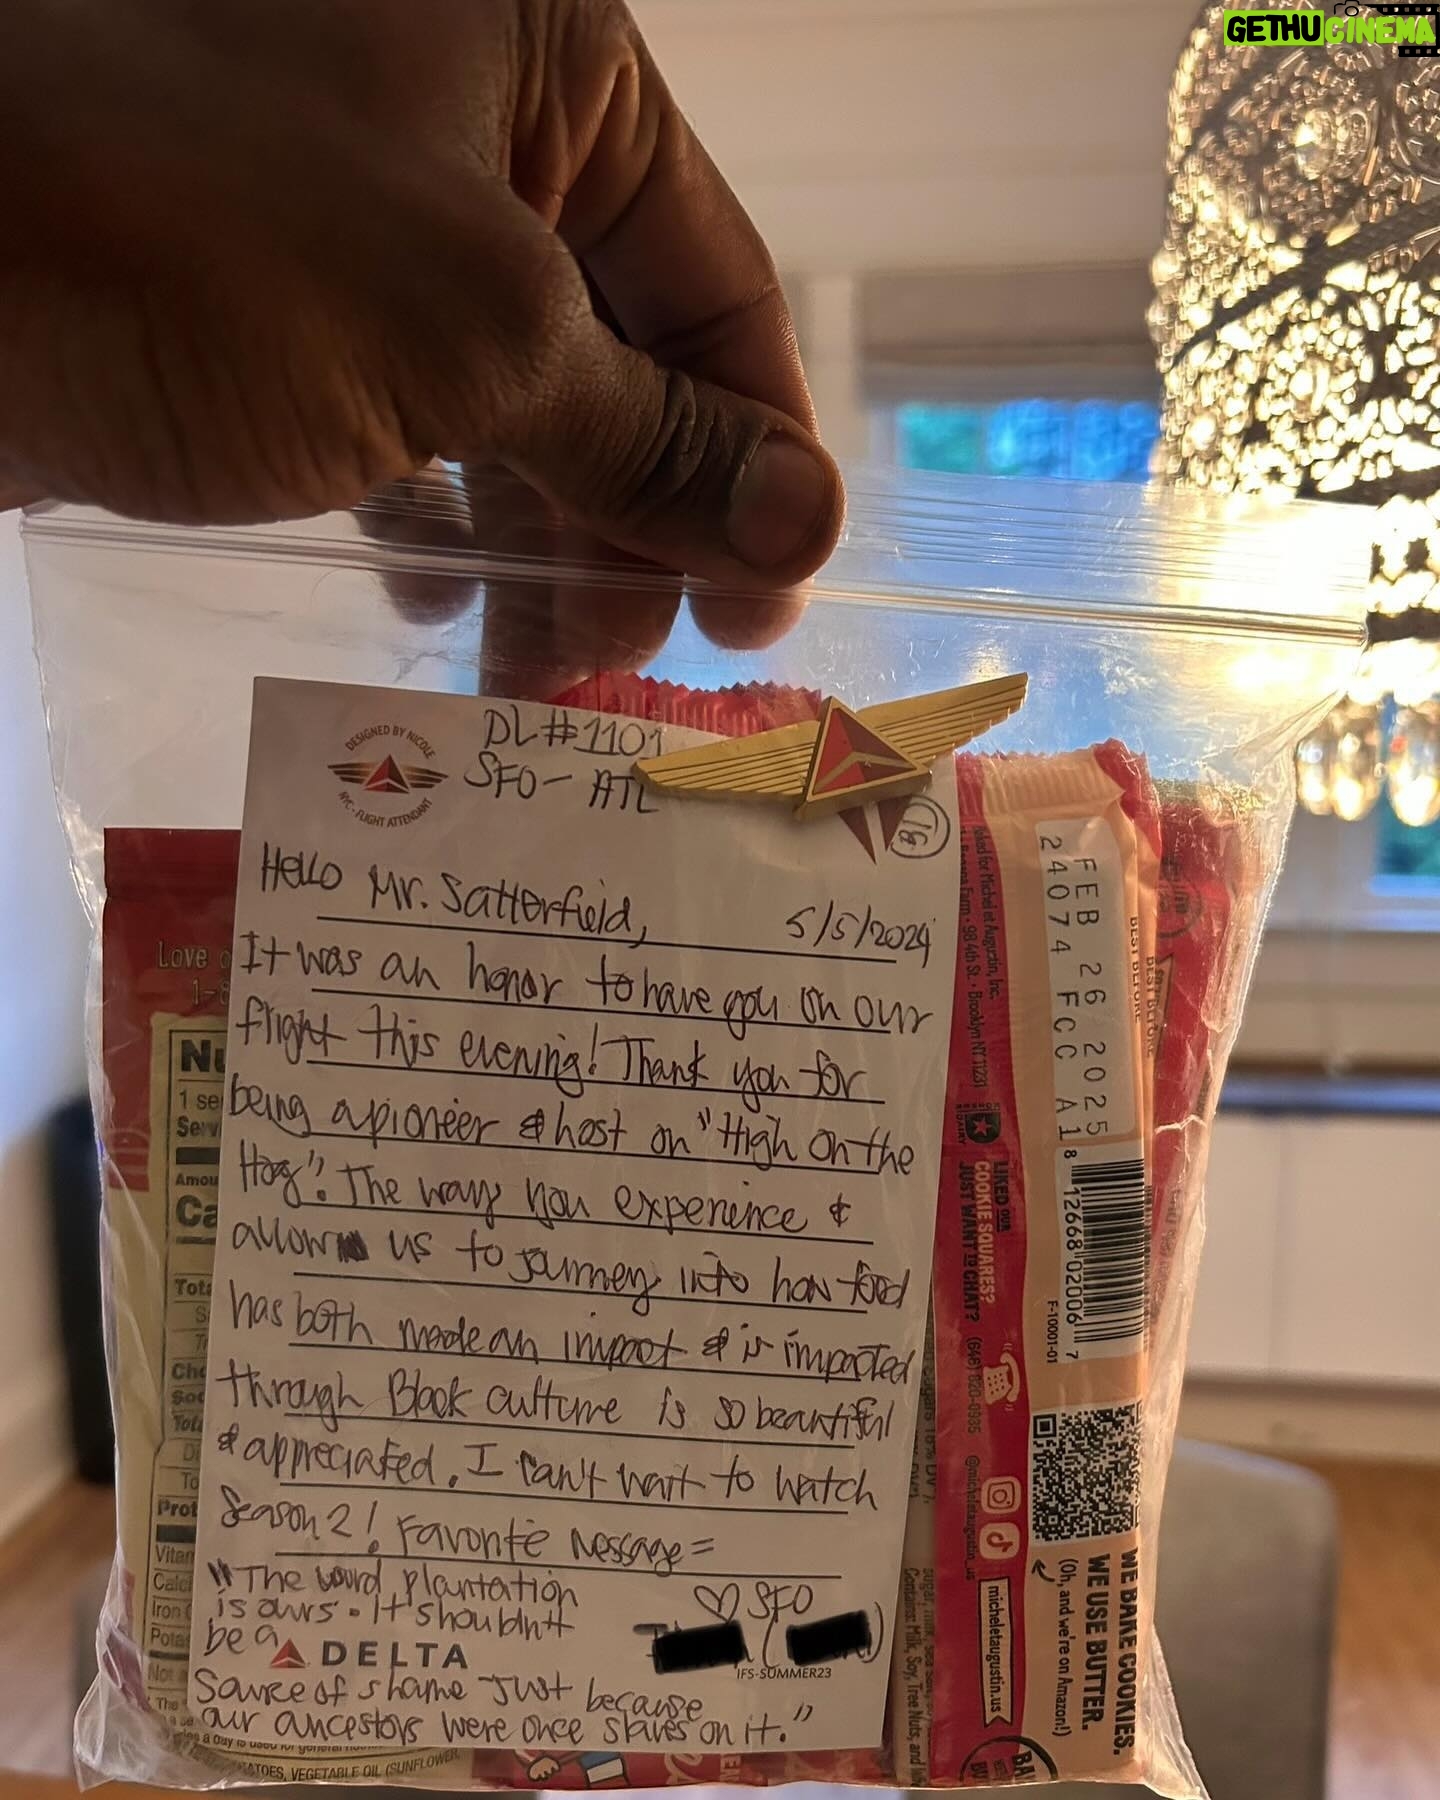 GETHUCINEMA
DESIGNED BY NICOLE
NYC - FLIGHT ATTENDANT
DL#1101
SFO - ATL
Hello Mr. Satterfield,
5/5/2024
It was an honor to have you on our
flight this evening! Thank you for
being a pioneer & host on "High on the
Hog"! The way you experience &
allow us to journey into how food
has both made an impact & is impacted
through Black culture is so beautiful
& appreciated. I can't wait to watch
Season 2! Favorite Message =
"The word plantation
is ours. It shouldn't
be a
DELTA
source of shame just because
our ancestors were once slaves on it."
♡ SFO
IFS-SUMMER23
Love
1 se
Serv
Amou
Ca
Prot
Vitam
Calci
Iron
Potas
VEGETABLE OIL (SUNFLOWER,
FEB 26 2025
24074 FCC A1
BEST BEFORE
8 12668 02006 7
F-10001-01
98 4th St. • Brooklyn NY 11231
LIKED OUR
COOKIE SQUARES?
JUST WANT TO CHAT?
(646) 820-0935
@micheletaugustin_us
micheletaugustin.us
WE BAKE COOKIES.
WE USE BUTTER.
(Oh, and we're on Amazon!)
Contains: Milk, Soy, Tree Nuts, and